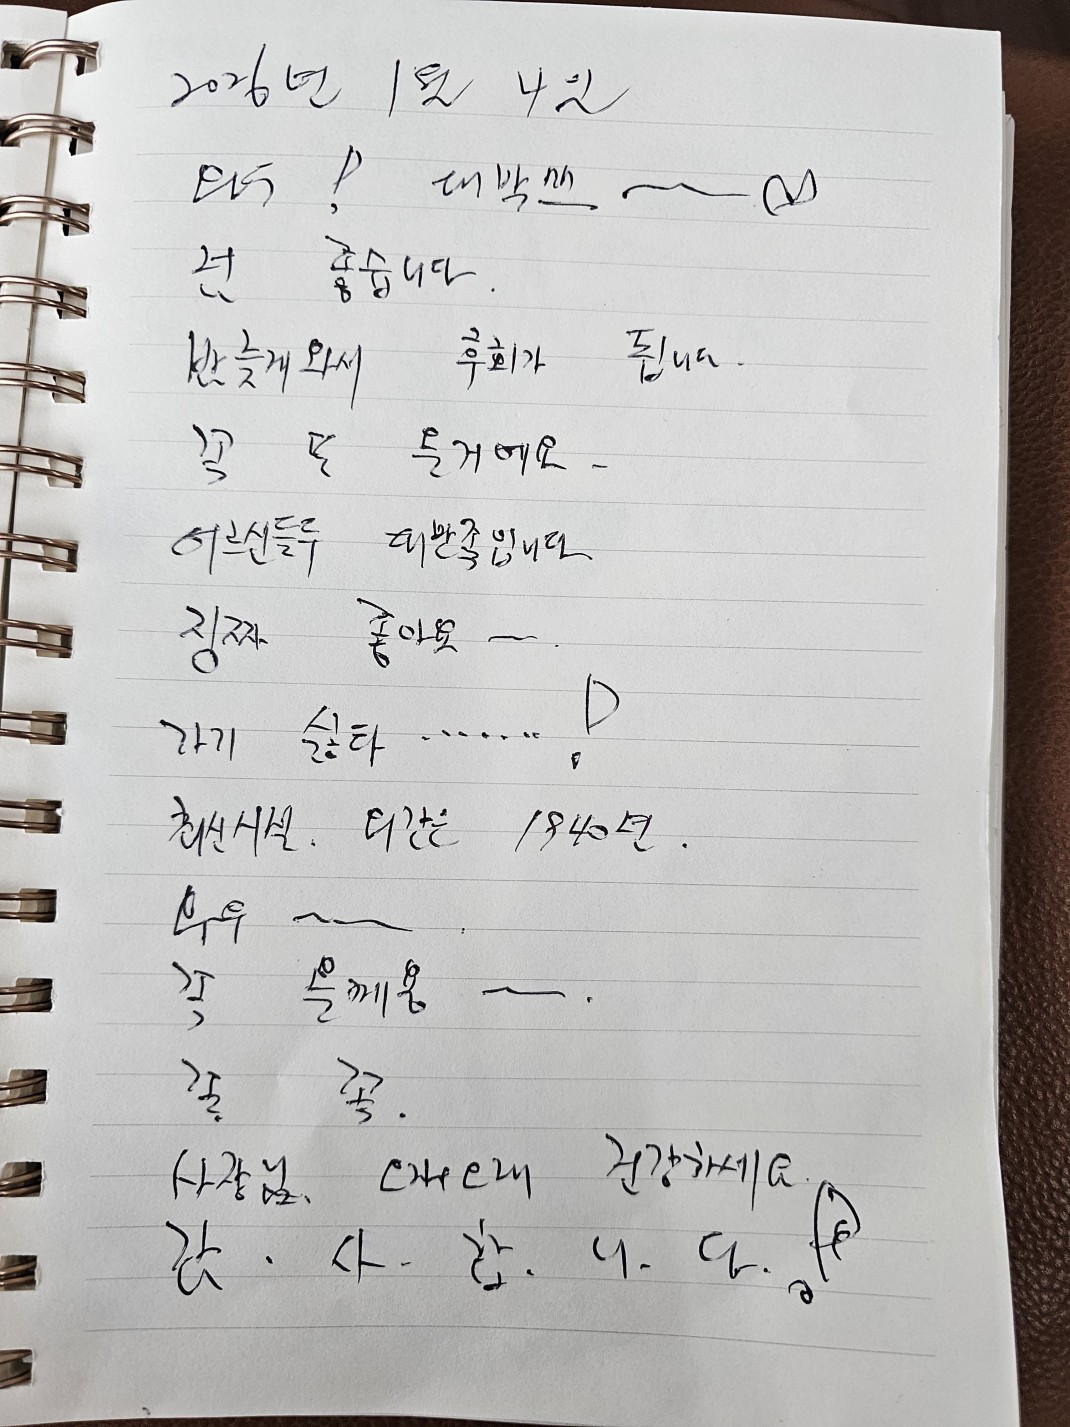 2026년 1월 4일
와우! 대박쓰~
전 좋습니다.
밤늦게와서 후회가 됩니다.
꼭 또 올거에요-
어르신들두 대만족입니다
징짜 좋아요~.
가기 싫타 .......!
최신시설. 1940년.
와우~.
꼭 올께용~.
꼭 꼭.
사장님. 오래오래 건강하세요.
감.사.합.니.다.